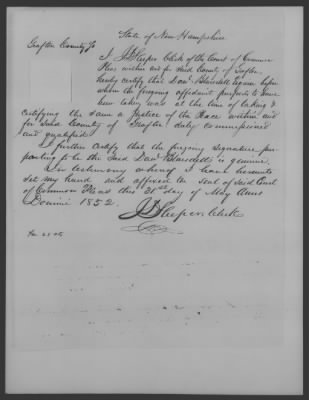 State of New Hampshire
Grafton County Ss
I J Sleeper Clerk of the Court of Common
Pleas within and for said County of Grafton
hereby certify that Danl Blaisdell Esquire before
whom the foregoing affidavit purports to have
been taken was at the time of taking &
certifying the same a Justice of the Peace within and
for said County of Grafton duly commissioned
and qualified
I further certify that the foregoing signature pur-
porting to be the said Danl Blaisdell is genuine.
In testimony whereof I have hereunto
set my hand and affixed the seal of said Court
of Common Pleas this 21st day of May Anno
Domini 1852.
J Sleeper Clerk